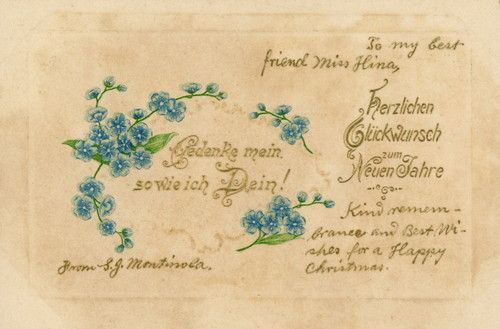 To my best
friend Miss Hina,
Herzlichen
Glückwunsch
zum
Neuen Jahre
Gedenke mein,
so wie ich Dein!
Kind remem-
brance and Best Wi-
shes for a Happy
Christmas.
From S. J. Montinola.